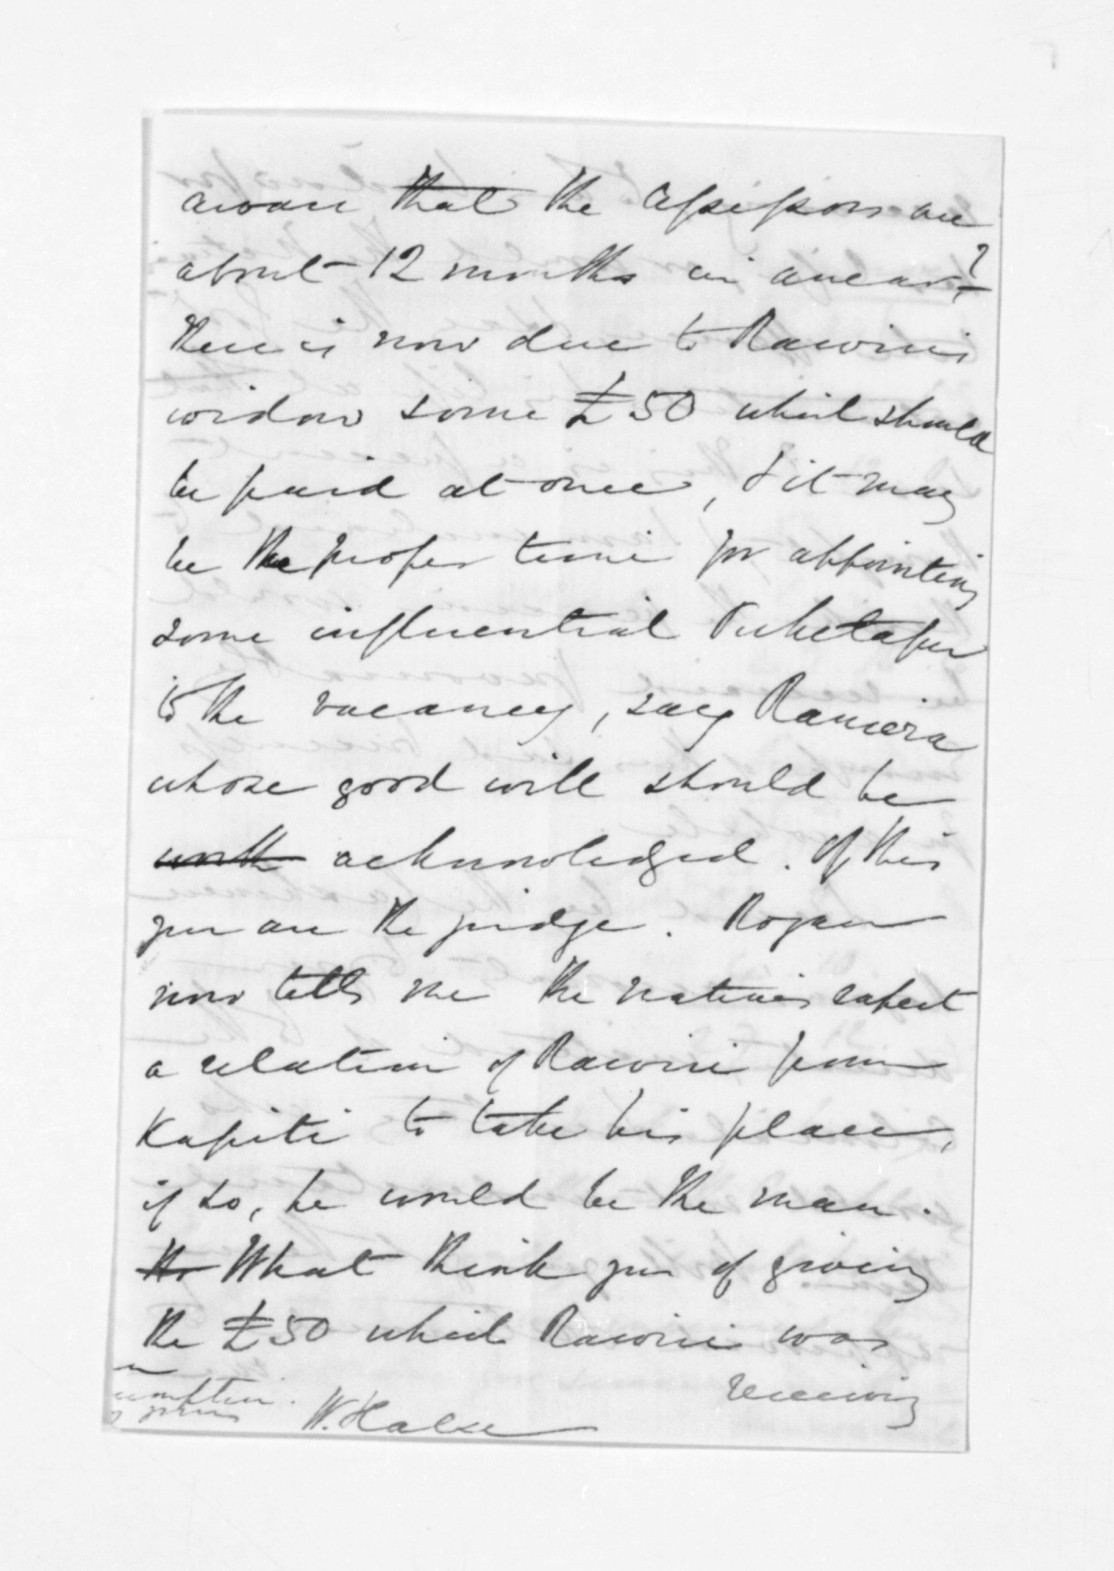 aware that the assessors are
about 12 months in arear?
there is now due to Rawiri's
widow some £50 which should
be paid at once, & it may
be the proper time for appointing
some influential Puketapu
to the vacancy, say Raniera
whose good will should be
worth acknowledged. Of this
you are the judge. Rogan
now tells me the natives expect
a relation of Rawiri from
Kapiti to take his place,
if so, he would be the man.
The What think you of giving
the £50 which Rawiri was
receiving
W. Halse